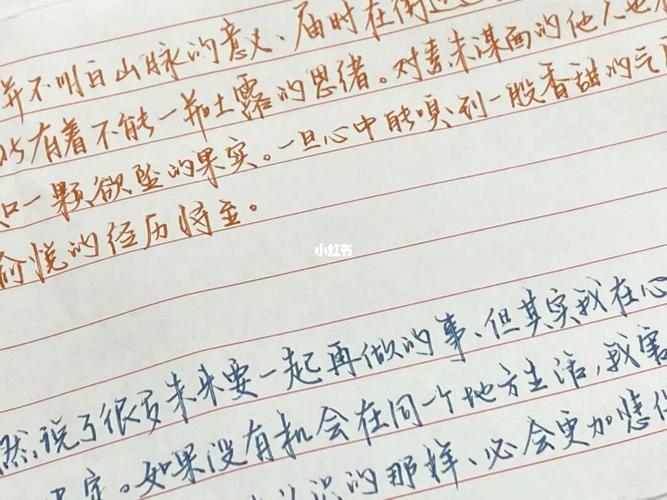 并不明白山脉的意义、届时在街道
有着不能一并吐露的思绪。对素未谋面的他人也
一颗欲坠的果实。一旦心中能嗅到一股香甜的气
愉悦的经历将至。
小红书
然说了很多未来要一起再做的事、但其实我在心
定。如果没有机会在同一个地方生活,我害
识的那样、必会更加悲